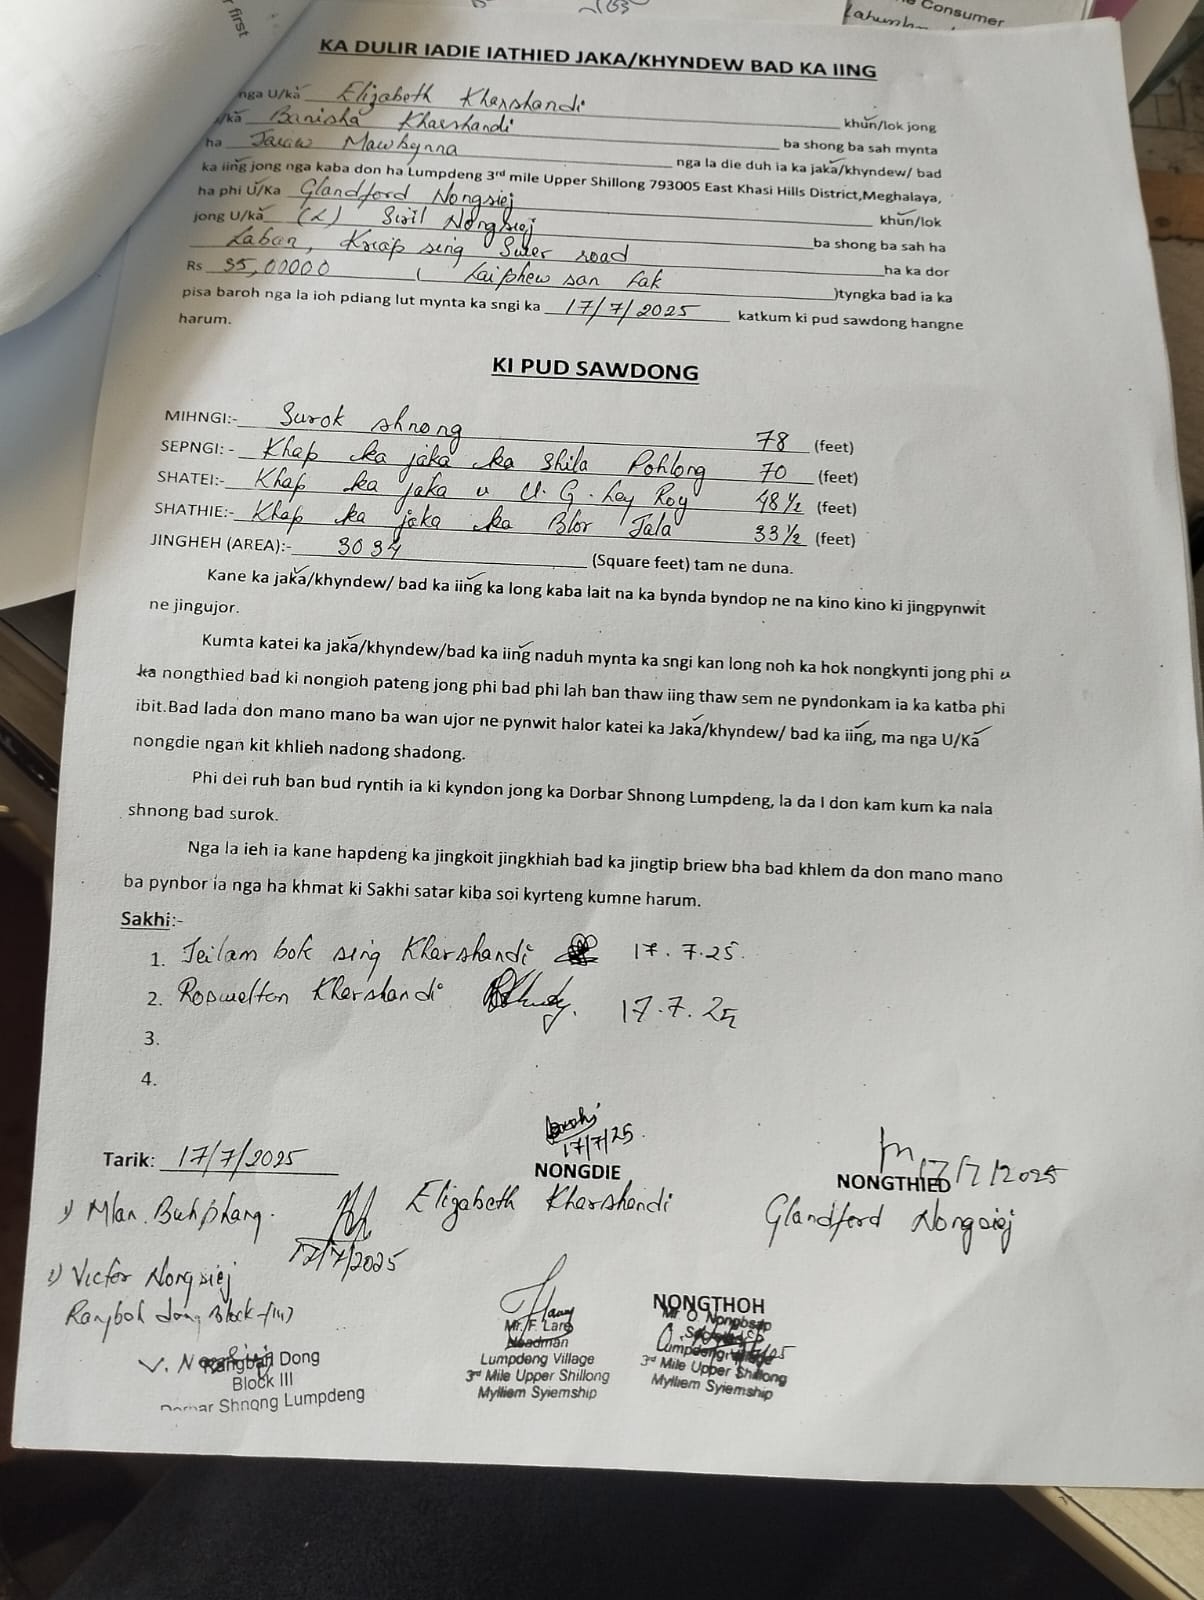 r first
Consumer
KA DULIR IADIE IATHIED JAKA/KHYNDEW BAD KA IING
nga U/ka Elizabeth Kharshandi
/ka Banisha Kharshandi khun/lok jong
ha Jaiaw Mawkynna ba shong ba sah mynta
nga la die duh ia ka jaka/khyndew/ bad
ka iing jong nga kaba don ha Lumpdeng 3rd mile Upper Shillong 793005 East Khasi Hills District,Meghalaya,
ha phi U/Ka Glandford Nongsiej khun/lok
jong U/ka (L) Siril Nongsiej ba shong ba sah ha
Laban, Kneap sing Suter road ha ka dor
Rs 35,00000 ( Laiphew san Lak )tyngka bad ia ka
pisa baroh nga la ioh pdiang lut mynta ka sngi ka 17/7/2025 katkum ki pud sawdong hangne
harum.
KI PUD SAWDONG
MIHNGI:- Surok shnong 78 (feet)
SEPNGI: - Khap ka jaka ka Shila Pohlong 70 (feet)
SHATEI:- Khap ka jaka u U. G. Lay Roy 48 1/2 (feet)
SHATHIE:- Khap ka jaka ka Blor Jala 33 1/2 (feet)
JINGHEH (AREA):- 3034 (Square feet) tam ne duna.
Kane ka jaka/khyndew/ bad ka iing ka long kaba lait na ka bynda byndop ne na kino kino ki jingpynwit
ne jingujor.
Kumta katei ka jaka/khyndew/bad ka iing naduh mynta ka sngi kan long noh ka hok nongkynti jong phi u
ka nongthied bad ki nongioh pateng jong phi bad phi lah ban thaw iing thaw sem ne pyndonkam ia ka katba phi
ibit.Bad lada don mano mano ba wan ujor ne pynwit halor katei ka Jaka/khyndew/ bad ka iing, ma nga U/Ka
nongdie ngan kit khlieh nadong shadong.
Phi dei ruh ban bud ryntih ia ki kyndon jong ka Dorbar Shnong Lumpdeng, la da I don kam kum ka nala
shnong bad surok.
Nga la ieh ia kane hapdeng ka jingkoit jingkhiah bad ka jingtip briew bha bad khlem da don mano mano
ba pynbor ia nga ha khmat ki Sakhi satar kiba soi kyrteng kumne harum.
Sakhi:-
1. Teilam bok sing Kharshandi 17.7.25.
2. Roswelton Kharshandi 17.7.25
3.
4.
17/7/25.
Tarik: 17/7/2025 NONGDIE NONGTHIED 17/7/2025
1) Mlan. Buhphang. Elizabeth Kharshandi Glandford Nongsiej
17/7/2025
2) Victor Nongsiej
Rangbah dong Block-(III)
V. N
Rangbah Dong
Block III
Dorbar Shnong Lumpdeng
Mr. F. Lare
Headman
Lumpdeng Village
3rd Mile Upper Shillong
Mylliem Syiemship
NONGTHOH
Mr O. Nongbsap
Lumpdeng Village
3rd Mile Upper Shillong
Mylliem Syiemship